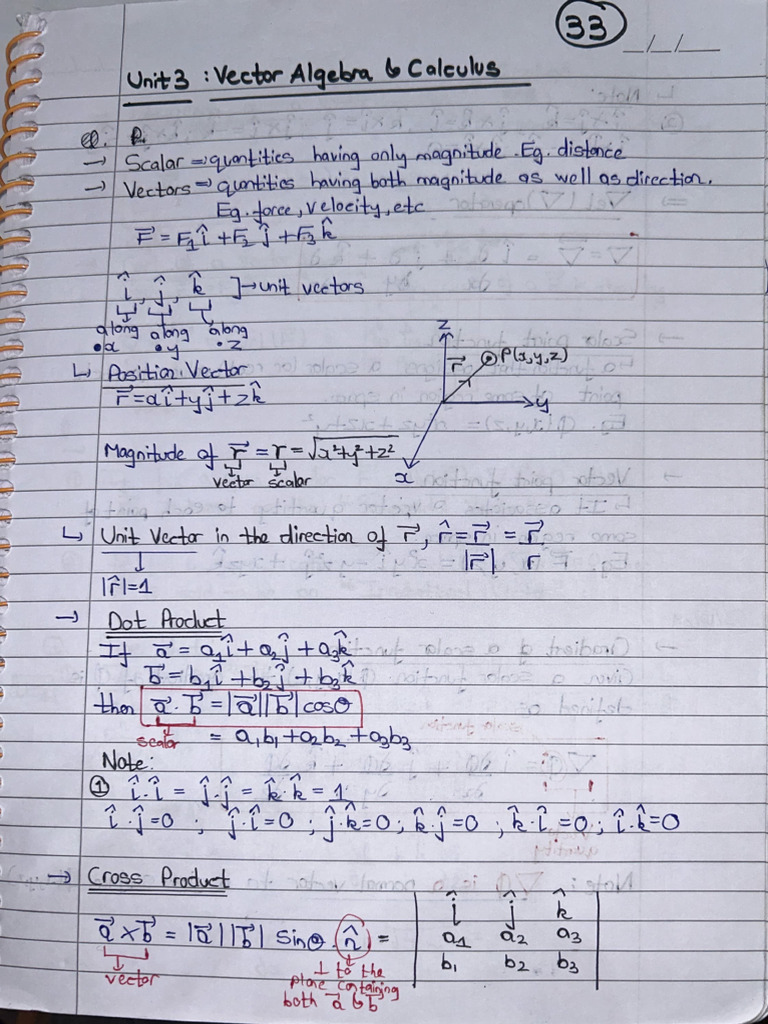 33
_/_/__
Unit 3 : Vector Algebra & Calculus
→ Scalar ⇒ quantities having only magnitude. Eg. distance
→ Vectors ⇒ quantities having both magnitude as well as direction.
Eg. force, velocity, etc
F⃗ = F₁î + F₂ĵ + F₃k̂
î, ĵ, k̂ ] → unit vectors
along along along
• x • y • z
↳ Position Vector
r⃗ = xî + yĵ + zk̂
z
r⃗ P(x, y, z)
y
x
Magnitude of r⃗ = r = √x²+y²+z²
vector scalar
↳ Unit Vector in the direction of r⃗, r̂ = r⃗/|r⃗| = r⃗/r
|r̂|=1
→ Dot Product
If a⃗ = a₁î + a₂ĵ + a₃k̂
b⃗ = b₁î + b₂ĵ + b₃k̂
then a⃗ · b⃗ = |a⃗||b⃗| cosθ
scalar = a₁b₁ + a₂b₂ + a₃b₃
Note:
① î·î = ĵ·ĵ = k̂·k̂ = 1
î·ĵ=0 ; ĵ·î=0 ; ĵ·k̂=0 ; k̂·ĵ=0 ; k̂·î=0 ; î·k̂=0
→ Cross Product
a⃗ × b⃗ = |a⃗||b⃗| sinθ · n̂ = | î ĵ k̂ |
| a₁ a₂ a₃ |
| b₁ b₂ b₃ |
vector
⊥ to the
plane containing
both a⃗ & b⃗